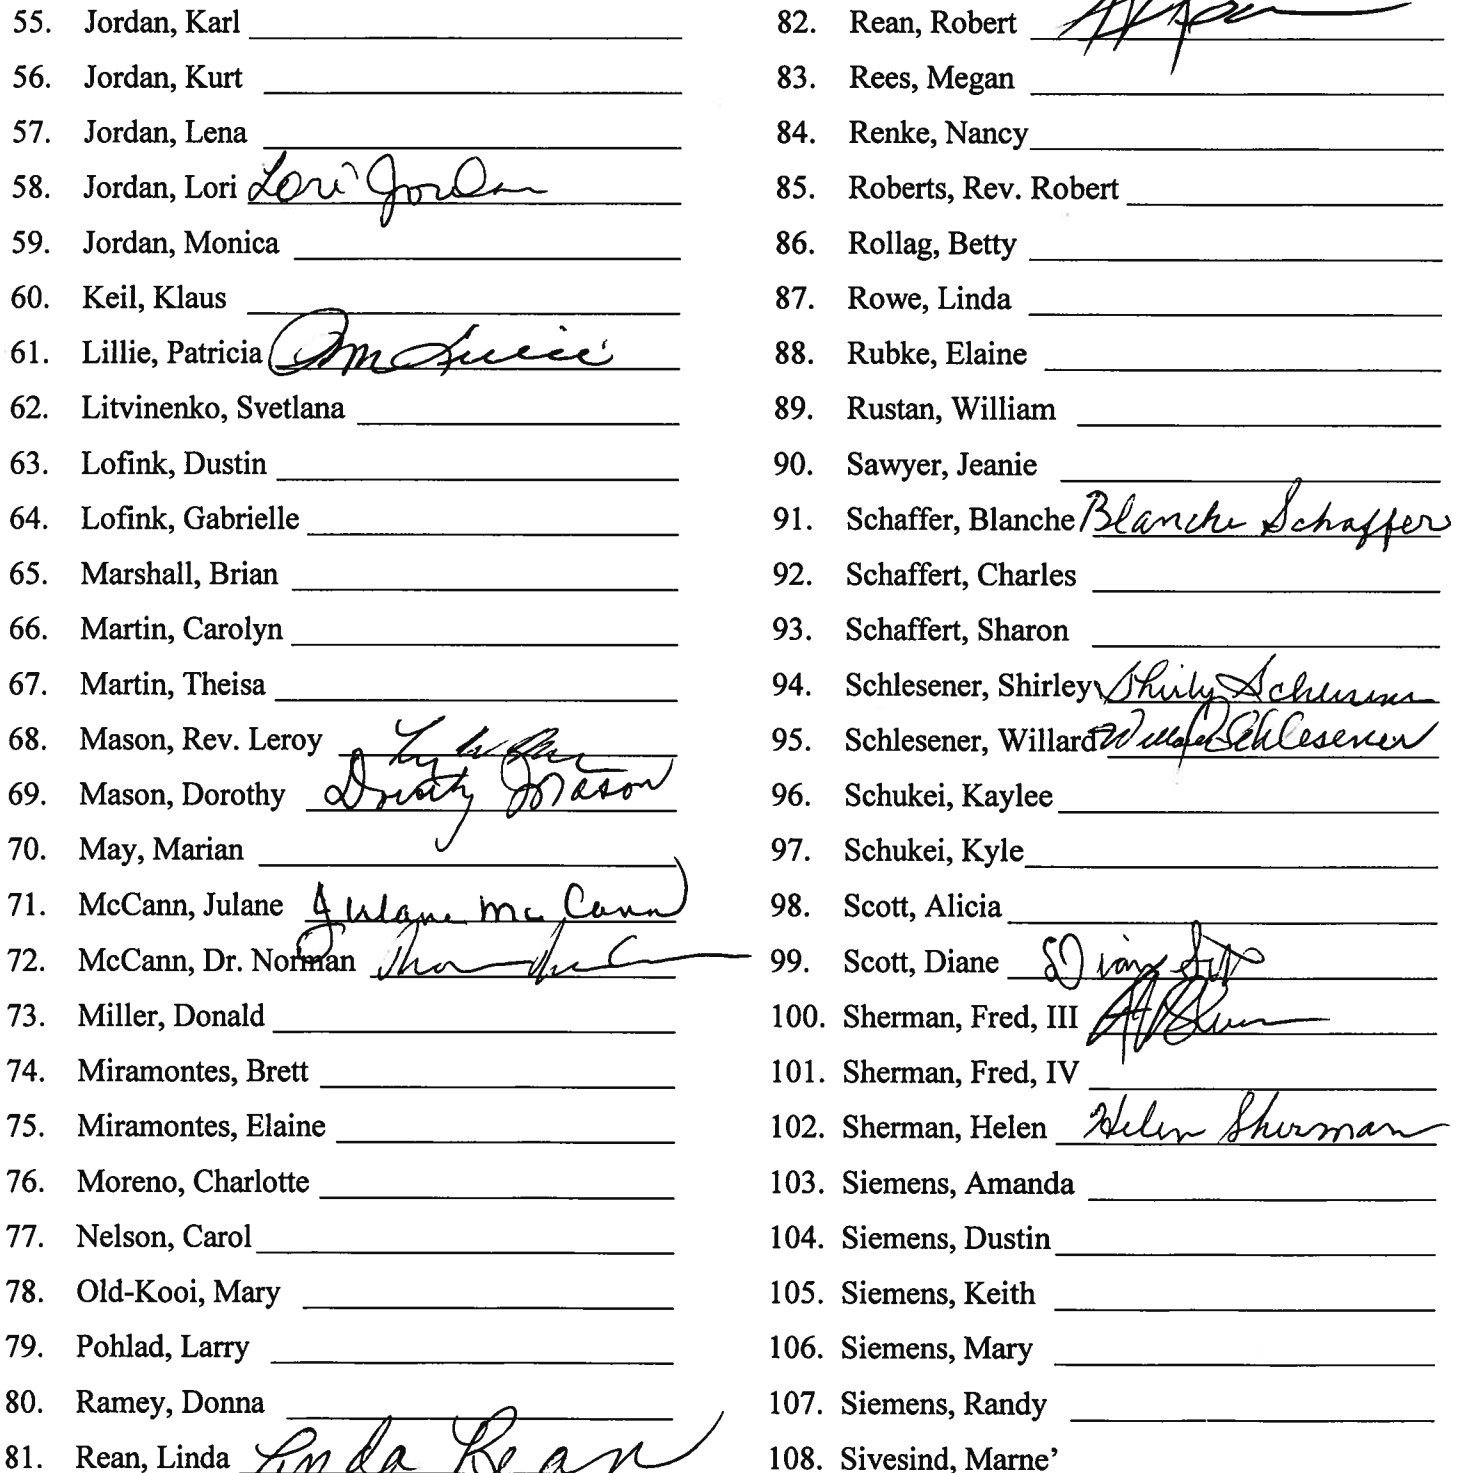 55. Jordan, Karl
56. Jordan, Kurt
57. Jordan, Lena
58. Jordan, Lori Lori Jordan
59. Jordan, Monica
60. Keil, Klaus
61. Lillie, Patricia
62. Litvinenko, Svetlana
63. Lofink, Dustin
64. Lofink, Gabrielle
65. Marshall, Brian
66. Martin, Carolyn
67. Martin, Theisa
68. Mason, Rev. Leroy
69. Mason, Dorothy Dorothy Mason
70. May, Marian
71. McCann, Julane Julane McCann
72. McCann, Dr. Norman
73. Miller, Donald
74. Miramontes, Brett
75. Miramontes, Elaine
76. Moreno, Charlotte
77. Nelson, Carol
78. Old-Kooi, Mary
79. Pohlad, Larry
80. Ramey, Donna
81. Rean, Linda Linda Rean
82. Rean, Robert
83. Rees, Megan
84. Renke, Nancy
85. Roberts, Rev. Robert
86. Rollag, Betty
87. Rowe, Linda
88. Rubke, Elaine
89. Rustan, William
90. Sawyer, Jeanie
91. Schaffer, Blanche Blanche Schaffer
92. Schaffert, Charles
93. Schaffert, Sharon
94. Schlesener, Shirley
95. Schlesener, Willard Schlesener
96. Schukei, Kaylee
97. Schukei, Kyle
98. Scott, Alicia
99. Scott, Diane
100. Sherman, Fred, III
101. Sherman, Fred, IV
102. Sherman, Helen Helen Sherman
103. Siemens, Amanda
104. Siemens, Dustin
105. Siemens, Keith
106. Siemens, Mary
107. Siemens, Randy
108. Sivesind, Marne’